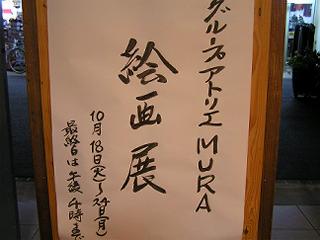 グループアトリエMURA
絵画展
10月18日(火)〜24日(月)
最終日は午後4時まで